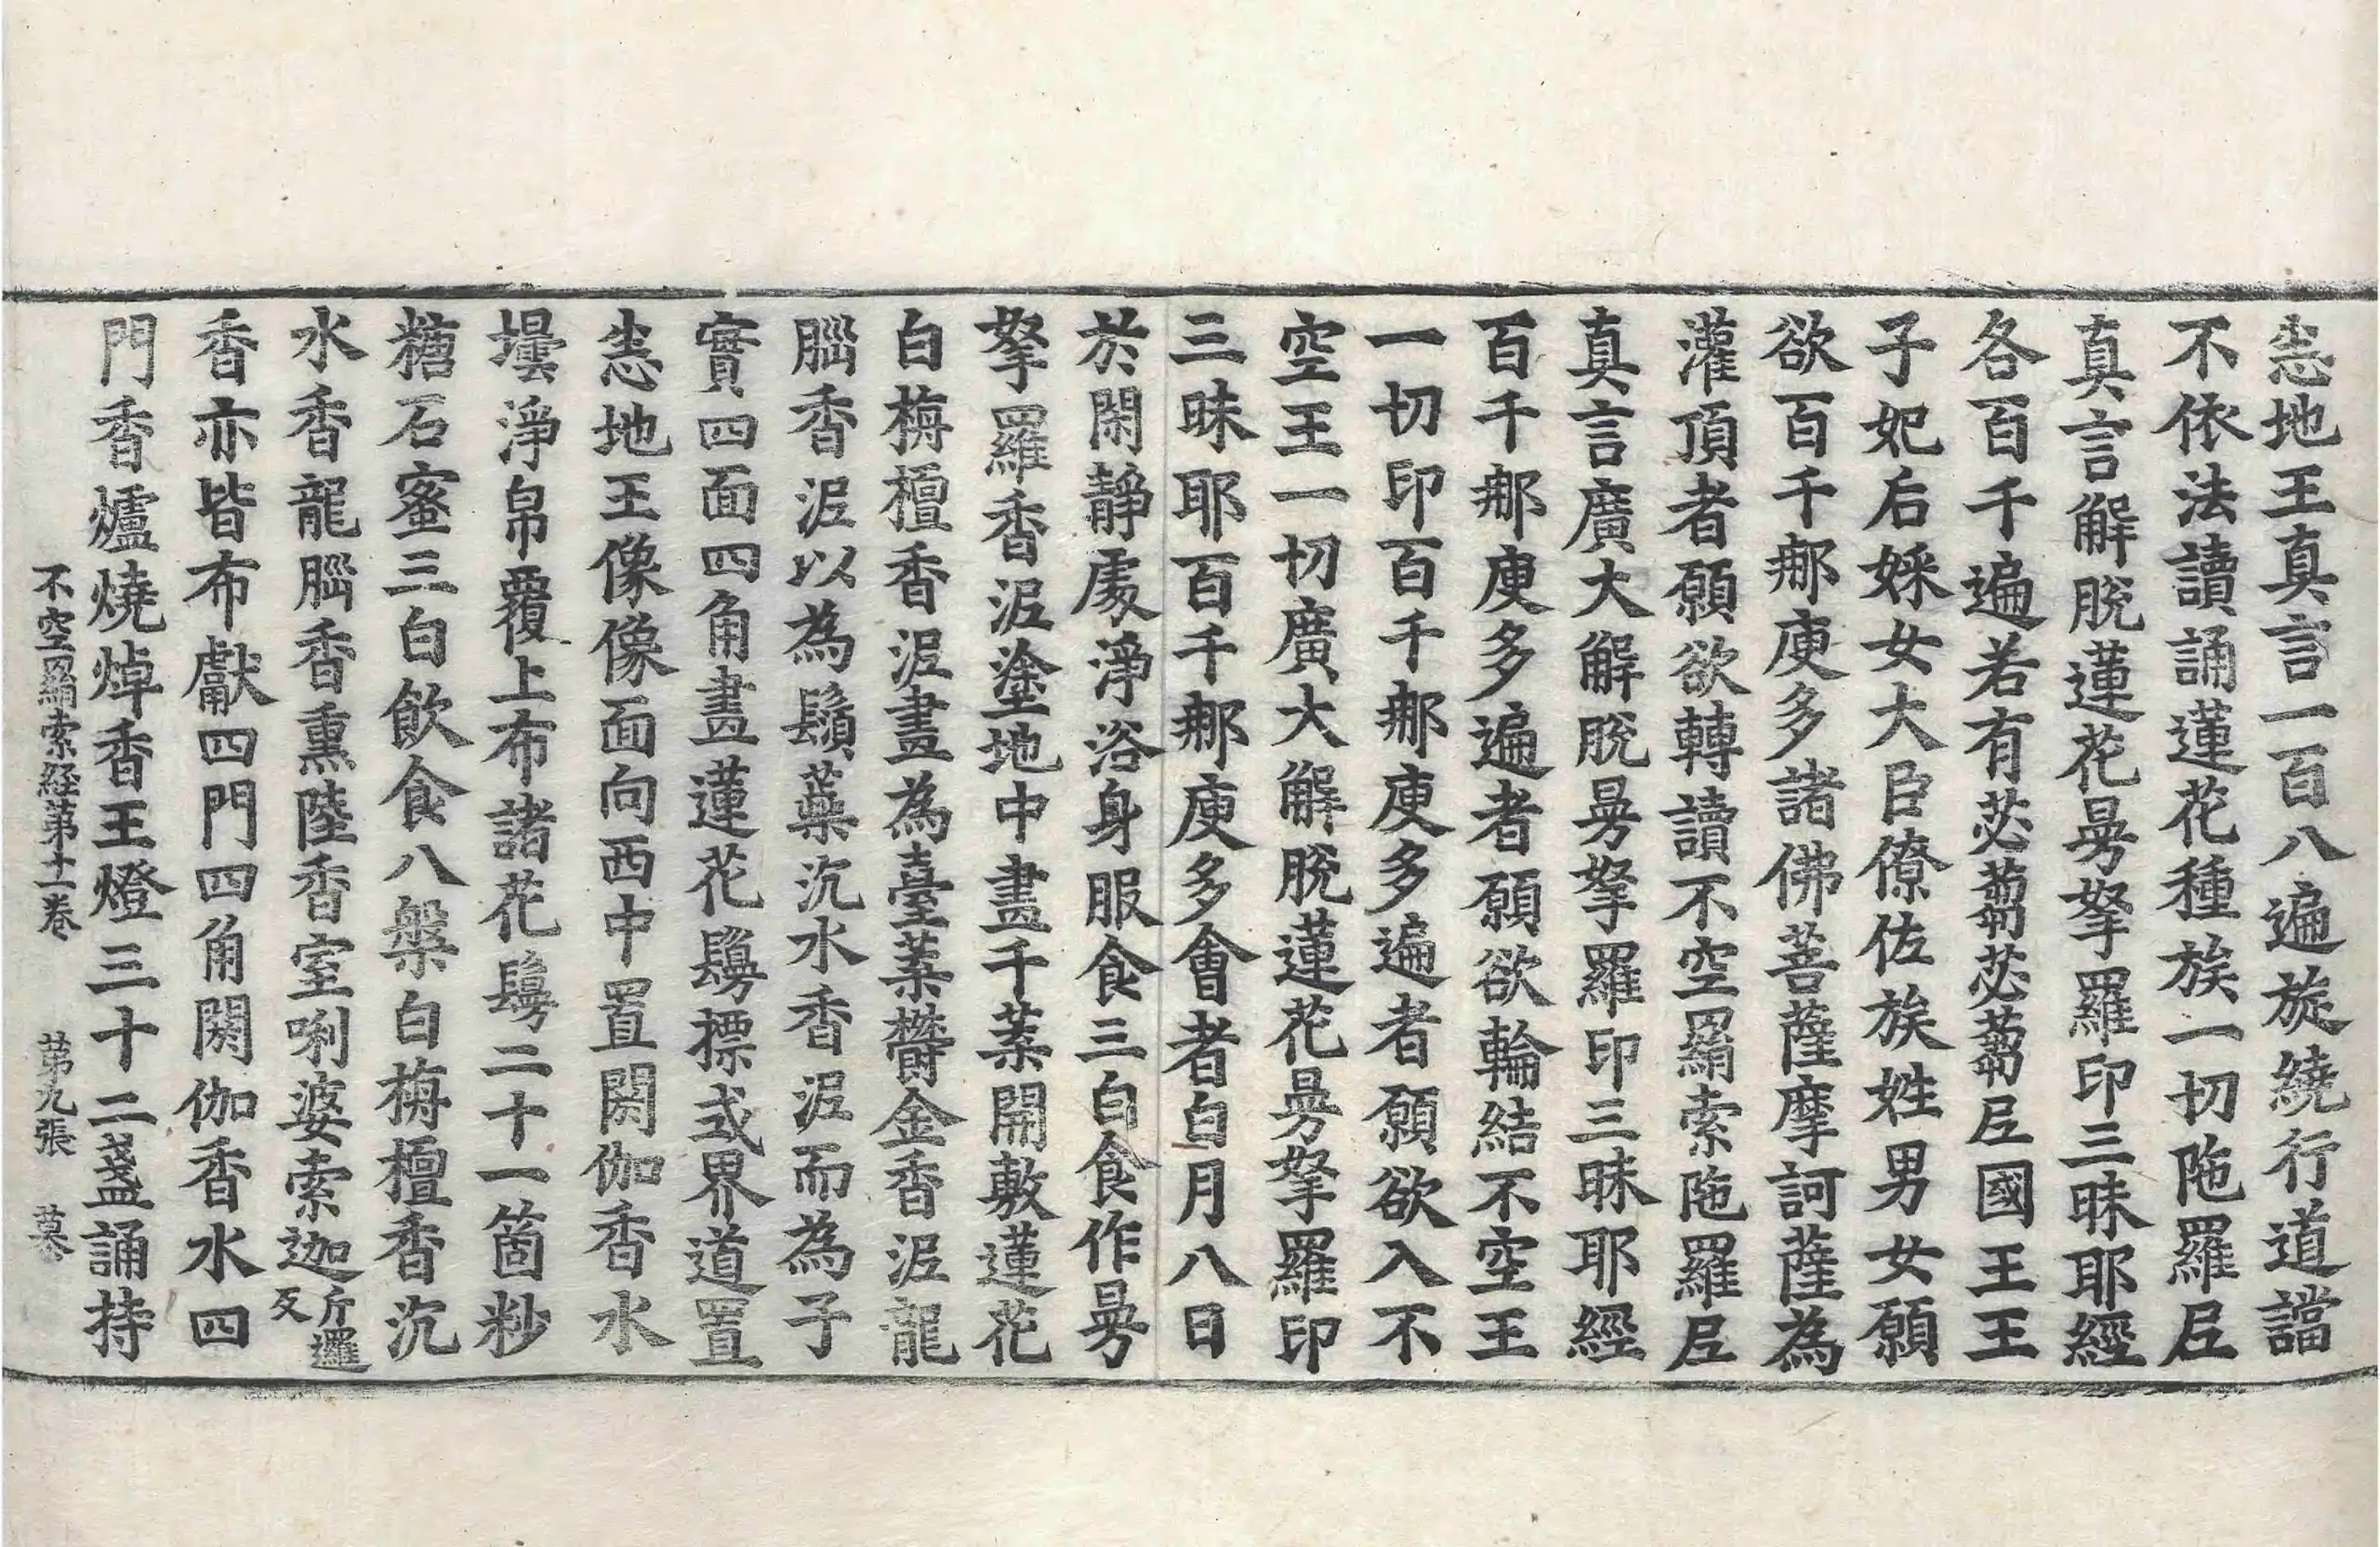 悘地王真言一百八遍旋繞行道讜
不依法讀誦蓮花種族一切陁羅𡰱
真言解脫蓮花㬅拏羅印三昧耶經
各百千遍若有苾蒭苾蒭𡰱國王王
子妃后婇女大臣僚佐族姓男女願
欲百千㖠庾多諸佛菩薩摩訶薩為
灌頂者願欲轉讀不空羂索陁羅𡰱
真言廣大解脫㬅拏羅印三昧耶經
百千㖠庾多遍者願欲輪結不空王
一切印百千㖠庾多遍者願欲入不
空王一切廣大解脫蓮花㬅拏羅印
三昧耶百千㖠庾多會者白月八日
於閑靜處淨浴身服食三白食作㬅
拏羅香泥塗地中畫千葉開敷蓮花
白栴檀香泥畫為臺葉欝金香泥龍
腦香泥以為鬚蘂沉水香泥而為子
實四面四角畫蓮花鬘摽式界道置
悘地王像像面向西中置閼伽香水
壜淨帛覆上布諸花鬘二十一箇粆
糖石蜜三白飲食八槃白栴檀香沉
水香龍腦香熏陸香室唎婆索迦斤邏反
香亦皆布獻四門四角閼伽香水四
門香爐燒焯香王燈三十二盞誦持
不空羂索経第十一卷 第九張 墓